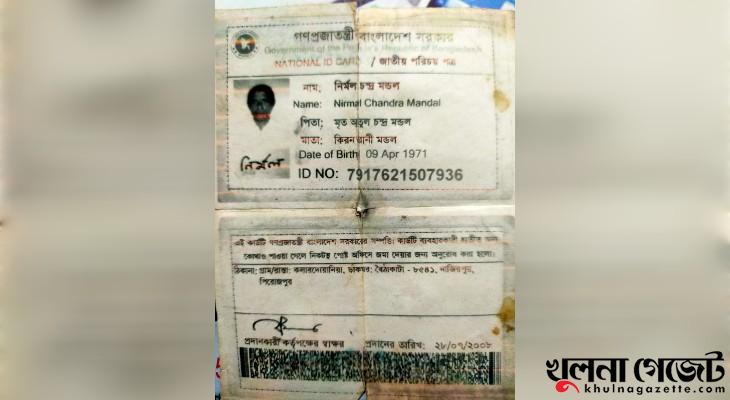 গণপ্রজাতন্ত্রী বাংলাদেশ সরকার
Government of the People's Republic of Bangladesh
NATIONAL ID CARD / জাতীয় পরিচয় পত্র
নাম: নির্মল চন্দ্র মন্ডল
Name: Nirmal Chandra Mandal
পিতা: মৃত অতুল চন্দ্র মন্ডল
মাতা: কিরন রানী মন্ডল
Date of Birth: 09 Apr 1971
ID NO: 7917621507936
নির্মল
এই কার্ডটি গণপ্রজাতন্ত্রী বাংলাদেশ সরকারের সম্পত্তি। কার্ডটি ব্যবহারকারী ব্যতীত অন্য
কোথাও পাওয়া গেলে নিকটস্থ পোষ্ট অফিসে জমা দেয়ার জন্য অনুরোধ করা হলো।
ঠিকানা: গ্রাম/রাস্তা: কলারদোয়ানিয়া, ডাকঘর: বৈঠাকাটা - ৮৫৪১, নাজিরপুর,
পিরোজপুর
প্রদানকারী কর্তৃপক্ষের স্বাক্ষর প্রদানের তারিখ: ২৮/০৭/২০০৮
খুলনা গেজেট
khulnagazette.com